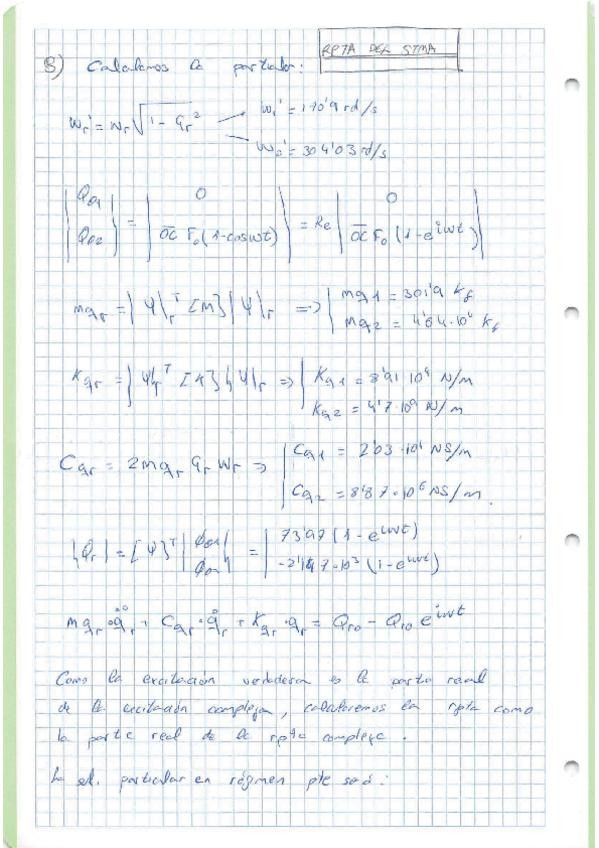 RPTA DEL STMA
8) Calculamos la particular:
Wr' = Wr √1 - ζr² → W1' = 170'9 rd/s
→ W2' = 304'03 rd/s
{Q01 Q02} = {0 OC F0 (1-coswt)} = Re {0 OC F0 (1-e^iwt)}
mqr = {Ψ}r^T [M] {Ψ}r => { mq1 = 301'9 kg
mq2 = 4'64·10^4 kg
Kqr = {Ψ}r^T [K] {Ψ}r => { Kq1 = 8'91·10^6 N/m
Kq2 = 4'7·10^9 N/m
Cqr = 2mqr ζr Wr => { Cq1 = 2'03·10^4 NS/m
Cq2 = 8'87·10^6 NS/m.
{Qr} = [Ψ]^T {Q01 Q02} = { 73'97 (1-e^iwt)
(1-e^iwt)
mqr·q̈r + Cqr·q̇r + Kqr·qr = Qr0 - Qr0 e^iwt
Como la excitación verdadera es la parte real
de la excitación compleja, calcularemos la rpta como
la parte real de la rpta compleja.
La sol. particular en régimen pte será: